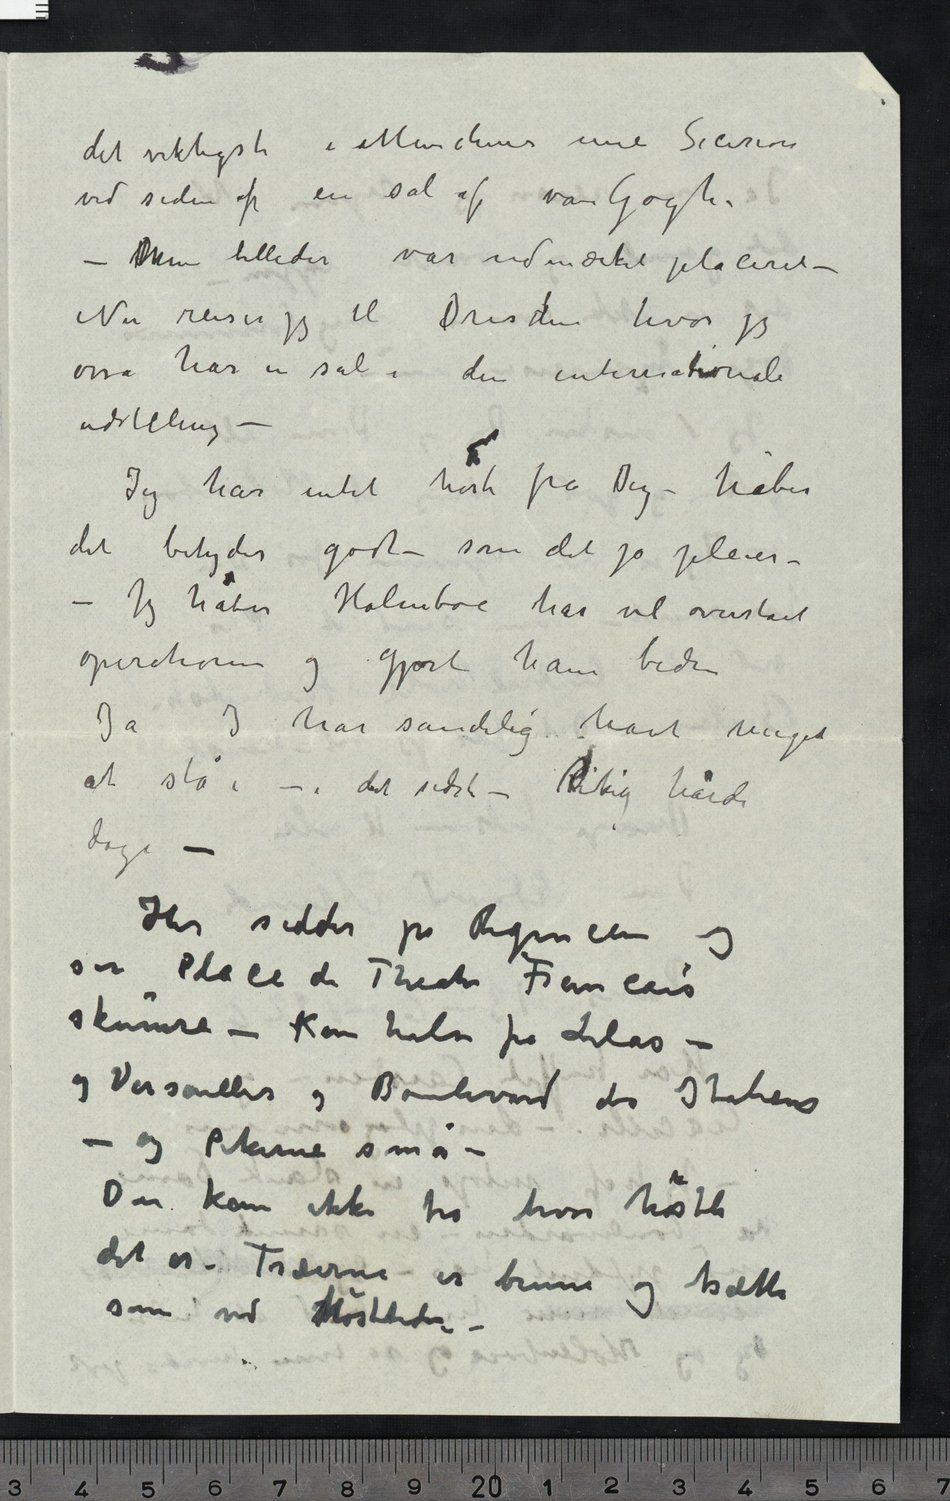 det viktigste i Münchener nnæ Secession
ved siden af en sal af van Gogh.
– Mine billeder var udmærket placeret –
Nu reiser jeg til Dresden hvor jeg
osså har en sal i den internationale
udstilling –
Jeg har intet hørt fra Dig – håber
det betyder godt – som det jo pleier –
– Jeg håber Holmboe har vel overstået
operationen og gjort ham bedre
Ja I har sandelig havt meget
at stå i – i det sidste – Riktig hårde
dage –
Her sidder på Regencen og
ser Place de Theatre Francais
skumre – Kan hilse fra Lilas –
og Versailles og Boulevard des Italiens
– og Pikerne små –
Du kan ikke tro hvor høstli
det er – Træerne er brune og trætte
som ved Høsttider –